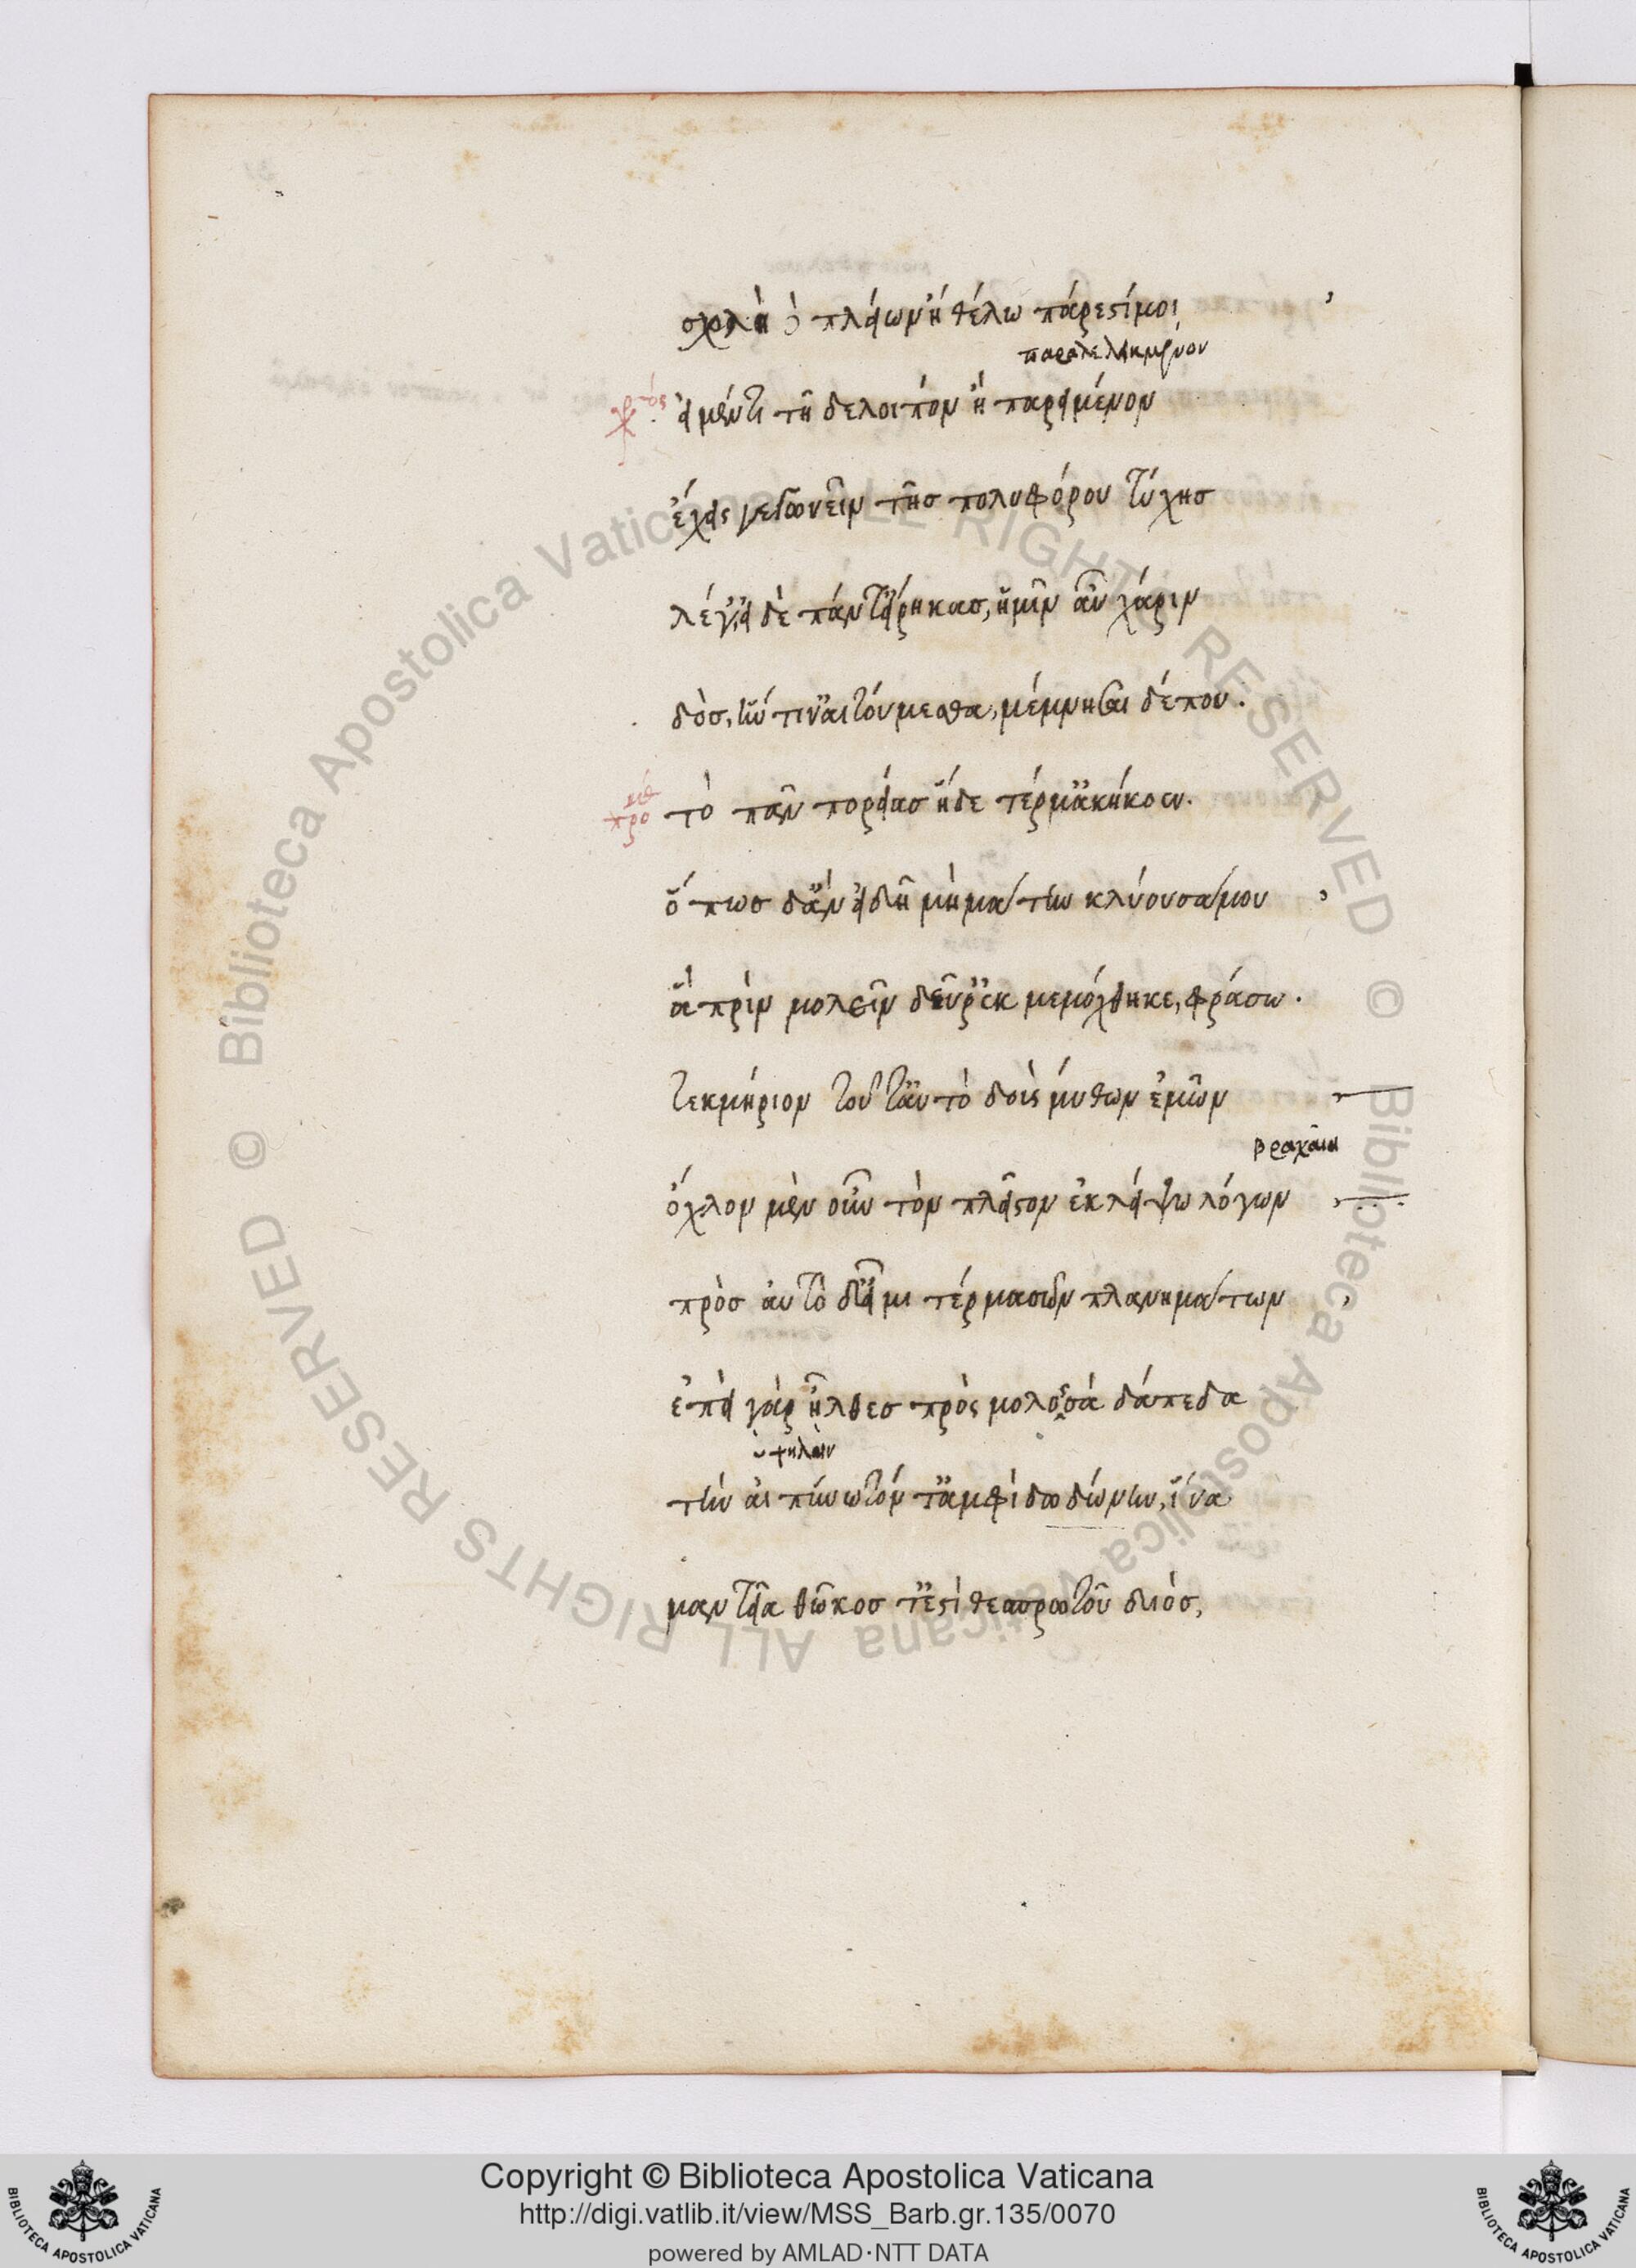 σχολὴ ὁ πλείων ἢ θέλω πάρεστί μοι,
παραλελειμμένον
χορός εἰ μέν τι τῇ δε λοιπὸν ἢ παρειμένον
ἔχεις γεγωνεῖν τῆς πολυφθόρου τύχης
λέγ', εἰ δὲ πάντ' εἴρηκας, ἡμῖν αὖ χάριν
δὸς, ἥν τιν' αἰτούμεσθα, μέμνησαι δέ που.
προμηθ τὸ πᾶν πορείας ἥδε τέρμ' ἀκήκοεν.
ὅπως δ' ἂν εἰδῇ μὴ μάτην κλύουσά μου
ἃ πρὶν μολεῖν δεῦρ' ἐκμεμόχθηκε, φράσω.
τεκμήριον τοῦτ' αὐτὸ δοὺς μύθων ἐμῶν
ὄχλον μὲν οὖν τὸν πλεῖστον ἐκλείψω λόγων
πρὸς αὐτὸ δ' εἶμι τέρμα σῶν πλανημάτων
ἐπεὶ γὰρ ἦλθες πρὸς μολοσσὰ δάπεδα
ὑψηλὴν
τὴν αἰπύνωτόν τ' ἀμφὶ δωδώνην, ἵνα
μαντεῖα θῶκος τ' ἐστὶ θεσπρωτοῦ διός,
Copyright © Biblioteca Apostolica Vaticana
http://digi.vatlib.it/view/MSS_Barb.gr.135/0070
powered by AMLAD·NTT DATA